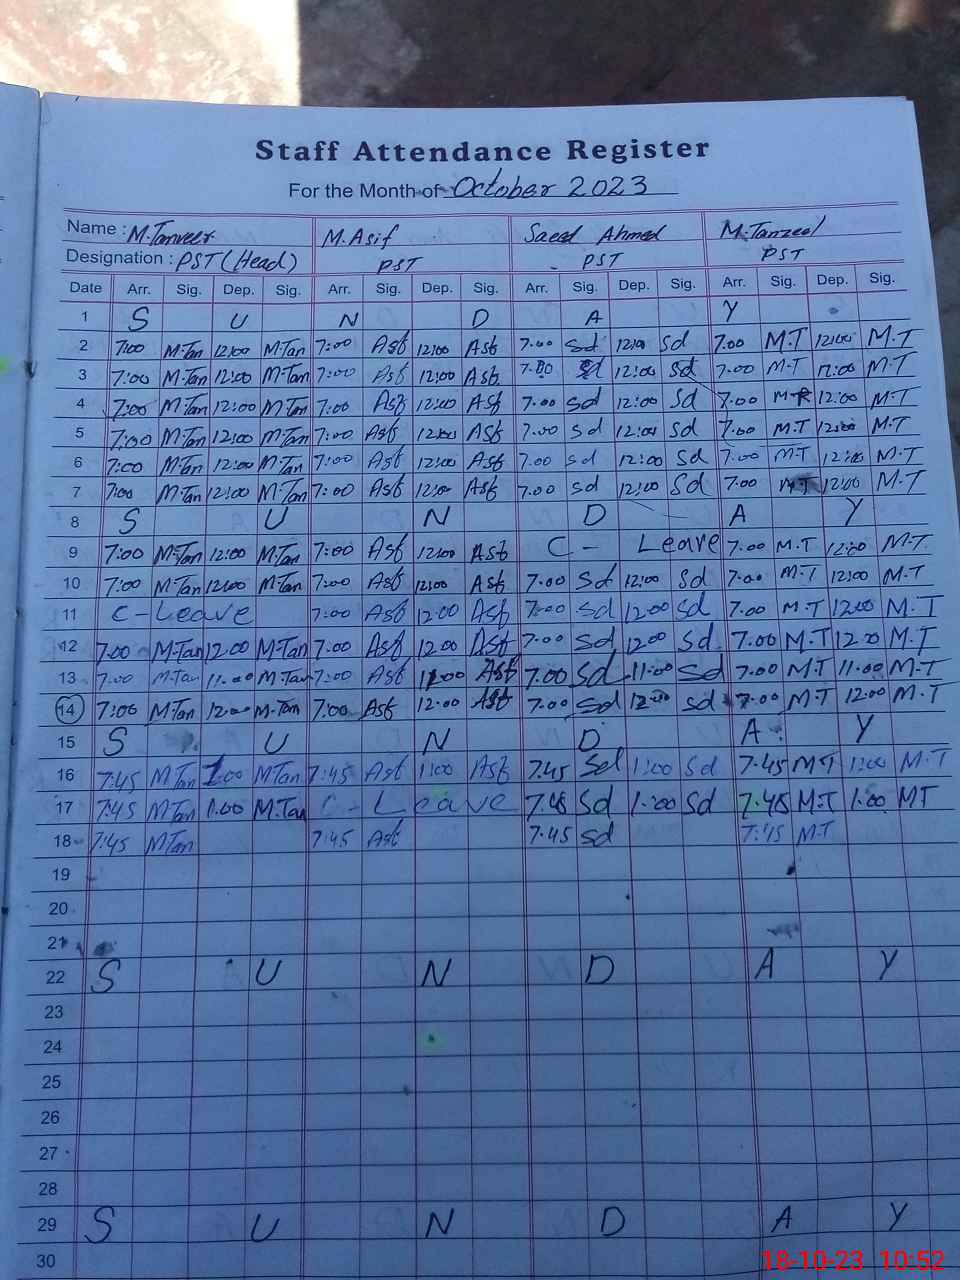 Staff Attendance Register
For the Month of October 2023
Name : M.Tanveer M.Asif Saeed Ahmed M.Tanzeel
Designation : PST (Head) PST PST PST
Date Arr. Sig. Dep. Sig. Arr. Sig. Dep. Sig. Arr. Sig. Dep. Sig. Arr. Sig. Dep. Sig.
1 S U N D A Y
2 7:00 M.Tan 12:00 M.Tan 7:00 Asf 12:00 Asf 7.00 Sd 12:00 Sd 7.00 M.T 12:00 M.T
3 7:00 M.Tan 12:00 M.Tan 7:00 Asf 12:00 Asf 7.00 Sd 12:00 Sd 7.00 M.T 12:00 M.T
4 7:00 M.Tan 12:00 M.Tan 7:00 Asf 12:00 Asf 7.00 Sd 12:00 Sd 7.00 12:00 M.T
5 7:00 M.Tan 12:00 M.Tan 7:00 Asf 12:00 Asf 7.00 Sd 12:00 Sd 7.00 M.T 12:00 M.T
6 7:00 M.Tan 12:00 M.Tan 7:00 Asf 12:00 Asf 7.00 Sd 12:00 Sd 7.00 M.T 12:00 M.T
7 7:00 M.Tan 12:00 M.Tan 7:00 Asf 12:00 Asf 7.00 Sd 12:00 Sd 7.00 M.T 12:00 M.T
8 S U N D A Y
9 7:00 M.Tan 12:00 M.Tan 7:00 Asf 12:00 Asf C - Leave 7.00 M.T 12:00 M.T.
10 7:00 M.Tan 12:00 M.Tan 7:00 Asf 12:00 Asf 7.00 Sd 12:00 Sd 7.00 M.T 12:00 M.T
11 C-Leave 7:00 Asf 12:00 Asf 7:00 Sd 12:00 Sd 7.00 M.T 12:00 M.T
12 7.00 M.Tan 12.00 M.Tan 7.00 Asf 12.00 Asf 7:00 Sd 12.00 Sd. 7.00 M.T 12.00 M.T
13 7.00 M.Tan 11.00 M.Tan 7:00 Asf 11:00 Asf 7.00 Sd 11:00 Sd 7.00 M.T 11.00 M.T
14 7:00 M.Tan 12.00 M.Tan 7:00 Asf 12.00 Asf 7.00 Sd 12:00 Sd 7.00 M.T 12:00 M.T
15 S U N D A Y
16 7:45 M Tan 1:00 M Tan 7:45 Asf 1:00 Asf 7.45 Sd 1:00 Sd 7.45 M T 1:00 M.T
17 7:45 M Tan 1.00 M.Tan C - Leave 7.45 Sd 1:00 Sd 7.45 M.T 1.00 MT
18 7:45 M Tan 7:45 Asf 7.45 Sd 7:45 M.T
19
20
21
22 S U N D A Y
23
24
25
26
27
28
29 S U N D A Y
30
18-10-23 10:52